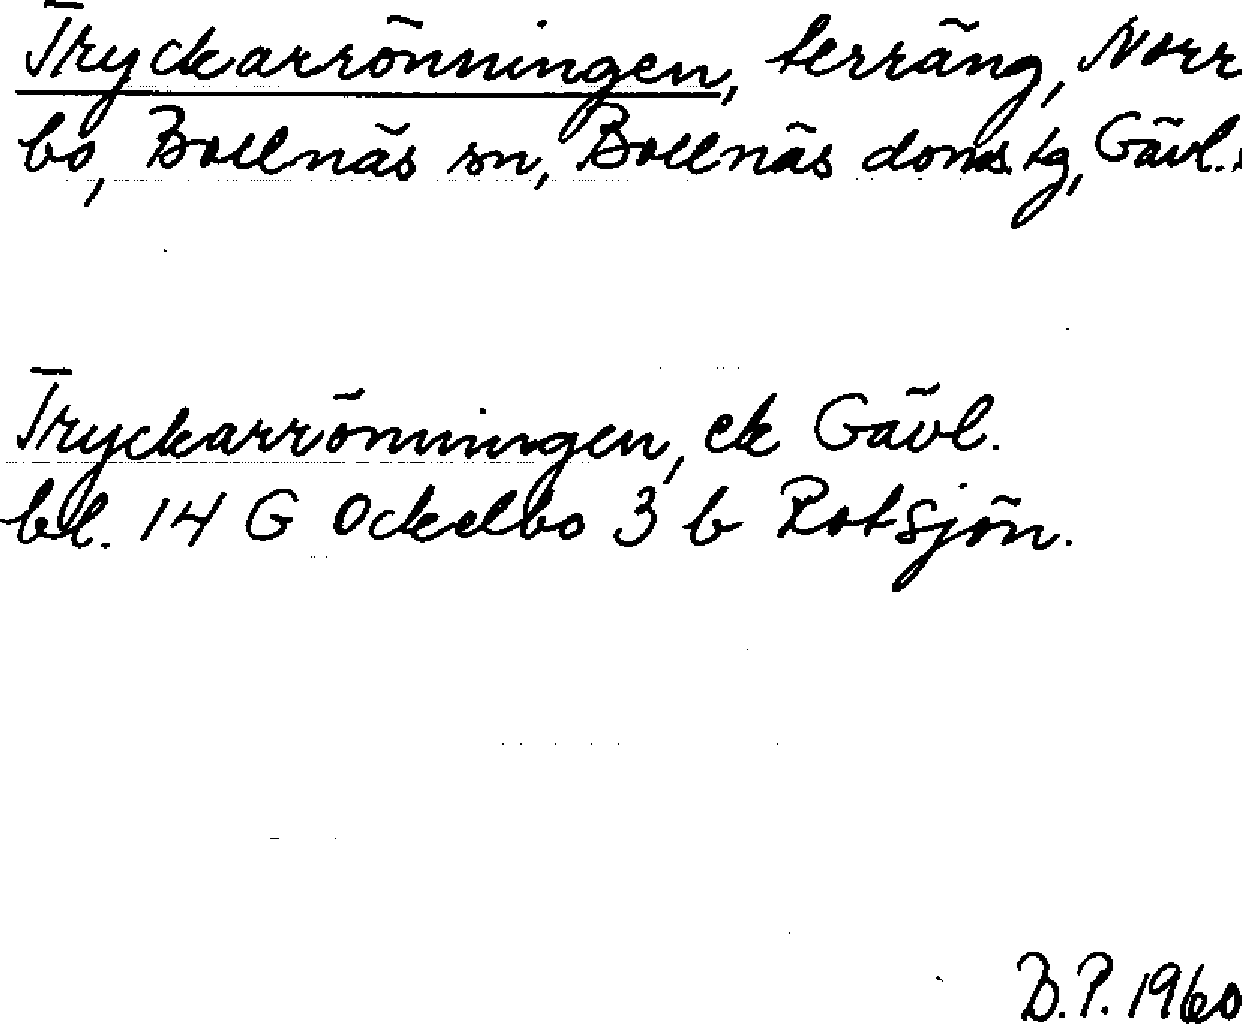 Tryckarrönningen, terräng, Norr
bo, Bollnäs sn, Bollnäs doms. tg, Gävl.
Tryckarrönningen, ek Gävl.
bl. 14 G Ockelbo 3 b Rotsjön.
D.P. 1960